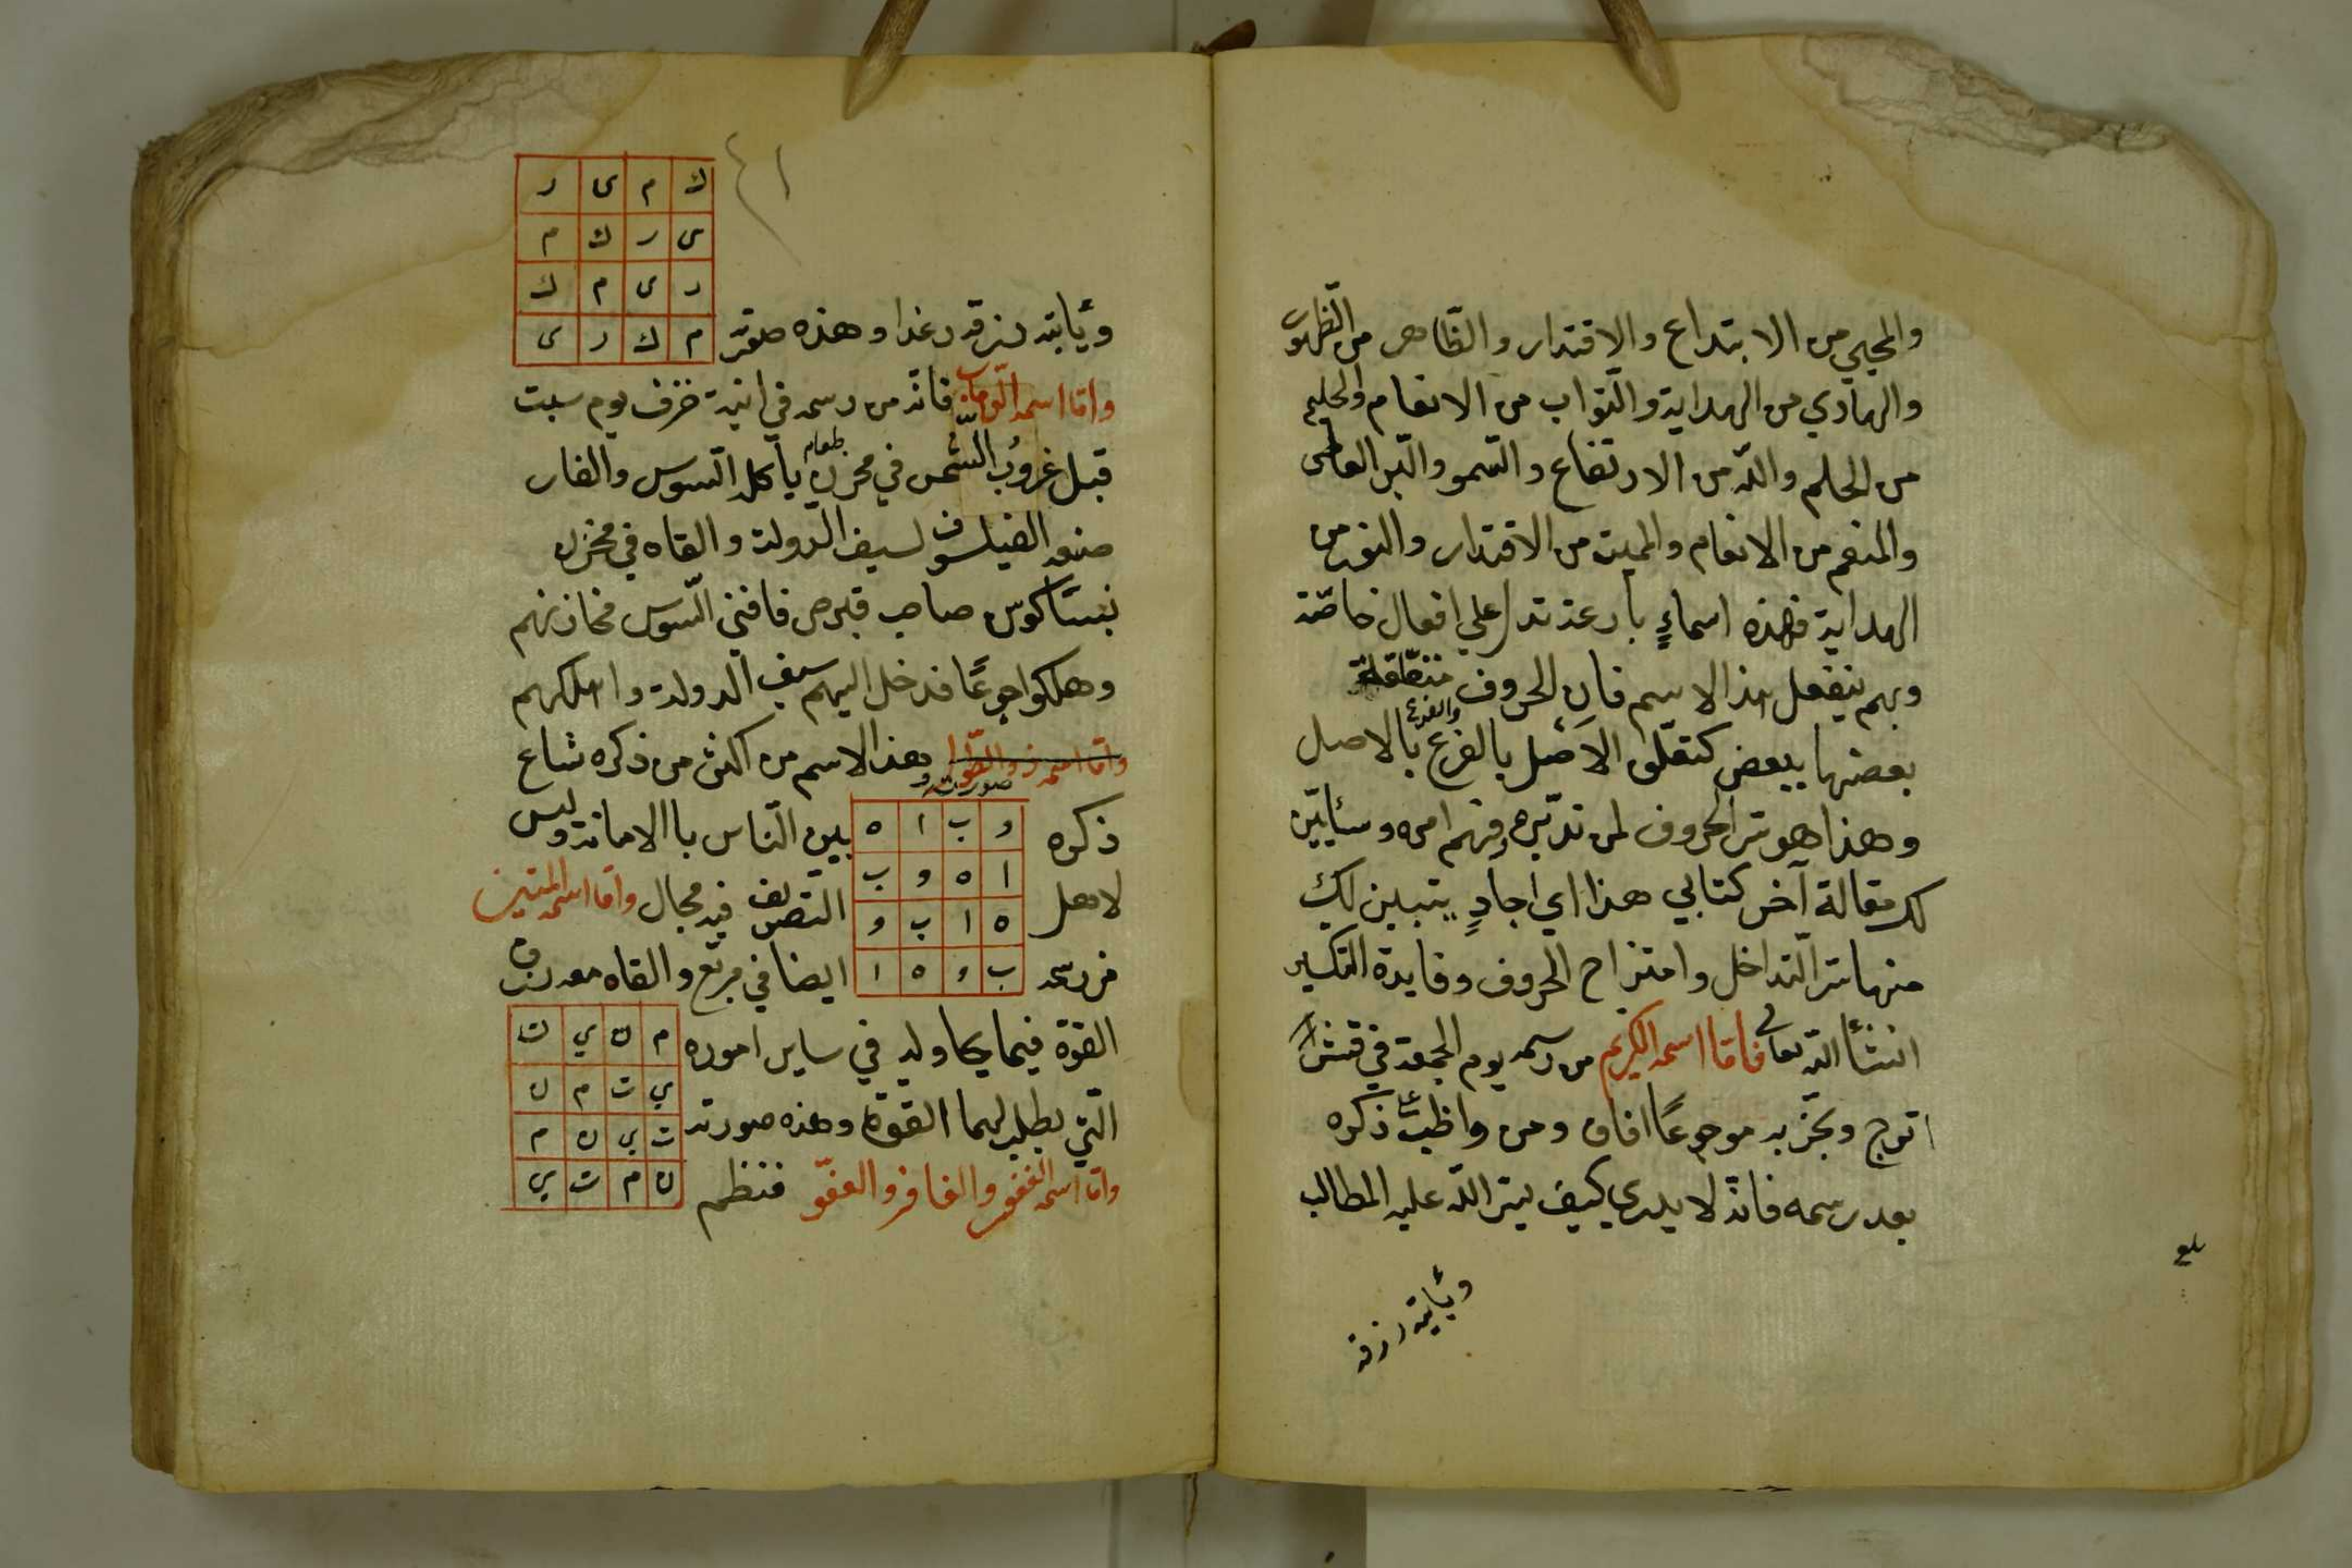 والمحيي من الابتداع والاقتدار والظاهر من الظهور
والهادي من الهداية والتواب من الانعام والحليم
من الحلم والله من الارتفاع والسمو والبر العاطى
والمنعم من الانعام والمميت من الاقتدار والنور من
الهداية فهذه اسماء بارعة تدل علي افعال خاصة
وبهم ينفعل هذا الاسم فان الحروف متعلقة
بعضها ببعض كتعلق الاصل بالفرع والفرع بالاصل
وهذا هو سر الحروف لمن تدبره وفهم امره وسأبين
لك مقالة آخر كتابي هذا اي اجاد يتبين لك
منها سر التداخل وامتزاج الحروف وفايدة التكسير
انشأ الله تعالى فاما اسمه الكريم من رسمه يوم الجمعة في قشر
اترج وبخر به موجوعا افاق ومن واظب على ذكره
بعد رسمه فانه لا يدري كيف يسر الله عليه المطالب
ويأتيه رزقه
بلغ
٤١
ك م ى ر
ى ر ك م
ر ى م ك
م ك ر ى
ويأتيه رزقه رغدا وهذه صورته
واما اسمه الوهاب فانه من رسمه في انية خزف يوم سبت
قبل غروب الشمس في مخزن طعام يأكله السوس والفار
صنعه الفيلسوف لسيف الدولة والقاه في مخزن
صاحب قبرص فافنى السوس مخازنهم
وهلكوا جوعا فدخل اليهم سيف الدولة واهلكهم
واما اسمه ذو الطول وهذا الاسم من اكثر من ذكره شاع
صورته
ذكره بين الناس باالامانة وليس
و ب ا ه
ا ه و ب
ه ا ب و
ب و ه ا
لاهل التصريف فيه مجال واما اسمه المتين
من رسمه ايضا في مربع والقاه معه رزق
القوة فيما يحاوله في ساير اموره
م ن ي ت
ي ت م ن
ت ي ن م
ن م ت ي
التي يطلب لها القوة وهذه صورته
واما اسمه الغفور والغافر والعفو فتنظم